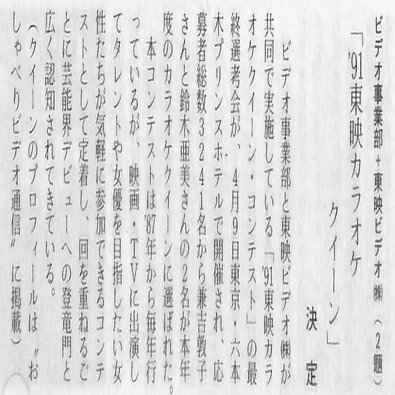 ビデオ事業部+東映ビデオ㈱(2題)
「'91東映カラオケ
クイーン」
決定
ビデオ事業部と東映ビデオ㈱が
共同で実施している「'91東映カラ
オケクイーン・コンテスト」の最
終選考会が、4月9日東京・六本
木プリンスホテルで開催され、応
募者総数3241名から兼吉敦子
さんと鈴木亜美さんの2名が本年
度のカラオケクイーンに選ばれた。
本コンテストは'87年から毎年行
っているが、映画・TVに出演し
てタレントや女優を目指したい女
性たちが気軽に参加できるコンテ
ストとして定着し、回を重ねるご
とに芸能界デビューへの登竜門と
広く認知されてきている。
(クイーンのプロフィールは〝お
しゃべりビデオ通信〟に掲載)